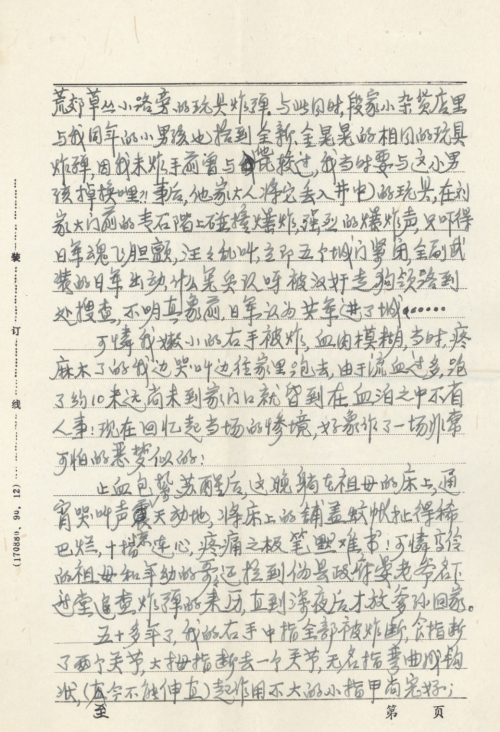 荒郊草丛小路旁的玩具炸弹。与此同时,段家小杂货店里
与我同年的小男孩也拾到全新、金晃晃的相同的玩具
炸弹,因我未炸手前曾与他比较过,我当时要与这小男
孩掉换哩?!事后,他家大人将它丢入井中)的玩具,在刘
家大门前的青石阶上碰撞爆炸,强烈的爆炸声,只吓得
日军魂飞胆颤,汪汪乱叫,立即五个城门紧闭,全副武
装的日军出动,什么宪兵队呀被汉奸走狗领路到
处搜查,不明真象前,日军认为共军进了城……
可怜我嫩小的右手被炸,血肉模糊,当时,疼
麻木了的我边哭叫边往家里跑去,由于流血过多,跑
了约10来远尚未到家门口就昏到在血泊之中不省
人事!现在回忆起当场的惨境,好象作了一场非常
可怕的恶梦似的!
止血包扎苏醒后,这晚躺在祖母的床上,通
宵哭叫声震天动地,将床上的铺盖蚊帐扯得稀
巴烂,十指连心,疼痛之极笔墨难书!可怜
的祖母和年幼的哥哥还拉到伪县政府要老爷名下
过堂追查炸弹的来历,直到深夜后才放爹孙回家。
五十多年了,我的右手中指全部被炸断,食指断
了两个关节,大拇指断去一个关节,无名指弯曲成钩
状,(至今不能伸直)起作用不大的小指甲尚完好;
至
第 页
装 订 线
(170889. 90. 12)